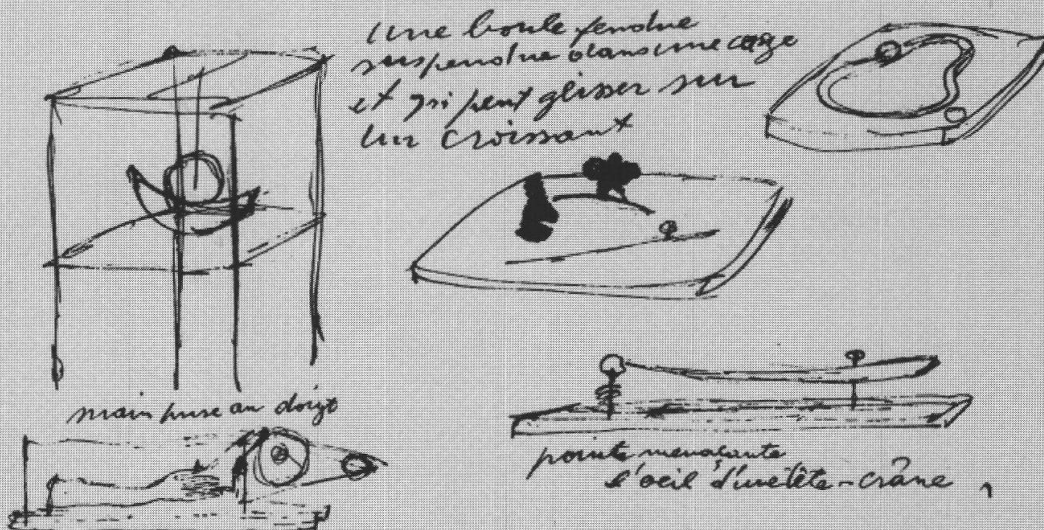 une boule fendue
suspendue dans une cage
et qui peut glisser sur
un croissant
main prise au doigt
pointe menaçante
l'oeil d'une tête-crâne